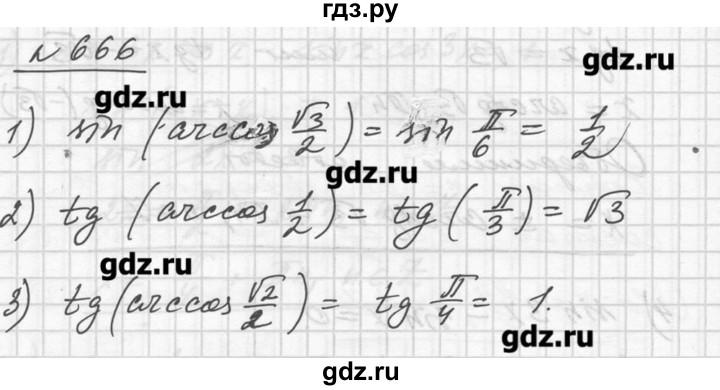 гдз.ру
N 666
gdz.ru
gdz.ru
1) sin (arccos √3/2) = sin π/6 = 1/2
gdz.ru
2) tg (arccos 1/2) = tg (π/3) = √3
gdz.ru
3) tg (arccos √2/2) = tg π/4 = 1.
gdz.ru
gdz.ru